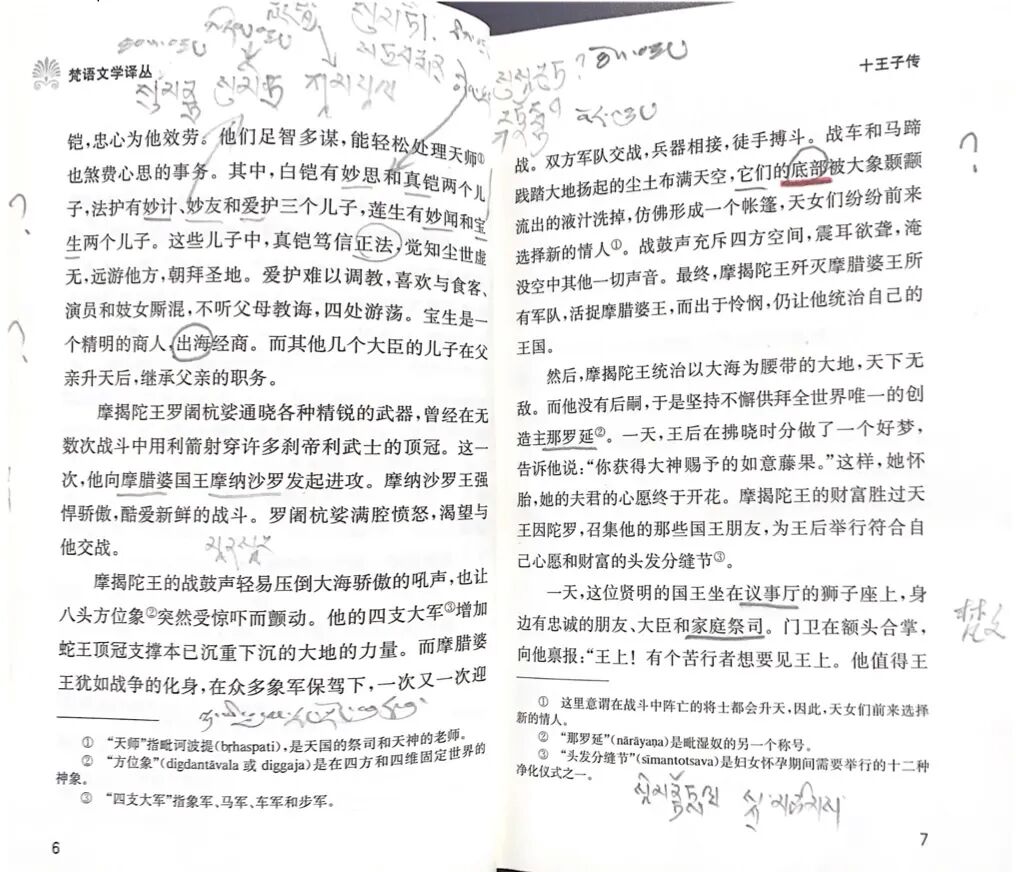 梵语文学译丛
铠,忠心为他效劳。他们足智多谋,能轻松处理天师①
也煞费心思的事务。其中,白铠有妙思和真铠两个儿
子,法护有妙计、妙友和爱护三个儿子,莲生有妙闻和宝
生两个儿子。这些儿子中,真铠笃信正法,觉知尘世虚
无,远游他方,朝拜圣地。爱护难以调教,喜欢与食客、
演员和妓女厮混,不听父母教诲,四处游荡。宝生是一
个精明的商人,出海经商。而其他几个大臣的儿子在父
亲升天后,继承父亲的职务。
摩揭陀王罗阇杭娑通晓各种精锐的武器,曾经在无
数次战斗中用利箭射穿许多刹帝利武士的顶冠。这一
次,他向摩腊婆国王摩纳沙罗发起进攻。摩纳沙罗王强
悍骄傲,酷爱新鲜的战斗。罗阇杭娑满腔愤怒,渴望与
他交战。
摩揭陀王的战鼓声轻易压倒大海骄傲的吼声,也让
八头方位象②突然受惊吓而颤动。他的四支大军③增加
蛇王顶冠支撑本已沉重下沉的大地的力量。而摩腊婆
王犹如战争的化身,在众多象军保驾下,一次又一次迎
① “天师”指毗诃波提(bṛhaspati),是天国的祭司和天神的老师。
② “方位象”(digdantāvala 或 diggaja)是在四方和四维固定世界的
神象。
③ “四支大军”指象军、马军、车军和步军。
6
十王子传
战。双方军队交战,兵器相接,徒手搏斗。战车和马蹄
践踏大地扬起的尘土布满天空,它们的底部被大象颞颥
流出的液汁洗掉,仿佛形成一个帐篷,天女们纷纷前来
选择新的情人①。战鼓声充斥四方空间,震耳欲聋,淹
没空中其他一切声音。最终,摩揭陀王歼灭摩腊婆王所
有军队,活捉摩腊婆王,而出于怜悯,仍让他统治自己的
王国。
然后,摩揭陀王统治以大海为腰带的大地,天下无
敌。而他没有后嗣,于是坚持不懈供拜全世界唯一的创
造主那罗延②。一天,王后在拂晓时分做了一个好梦,
告诉他说:“你获得大神赐予的如意藤果。”这样,她怀
胎,她的夫君的心愿终于开花。摩揭陀王的财富胜过天
王因陀罗,召集他的那些国王朋友,为王后举行符合自
己心愿和财富的头发分缝节③。
一天,这位贤明的国王坐在议事厅的狮子座上,身
边有忠诚的朋友、大臣和家庭祭司。门卫在额头合掌,
向他禀报:“王上!有个苦行者想要见王上。他值得王
梵文
① 这里意谓在战斗中阵亡的将士都会升天,因此,天女们前来选择
新的情人。
② “那罗延”(nārāyaṇa)是毗湿奴的另一个称号。
③ “头发分缝节”(sīmantotsava)是妇女怀孕期间需要举行的十二种
净化仪式之一。
7